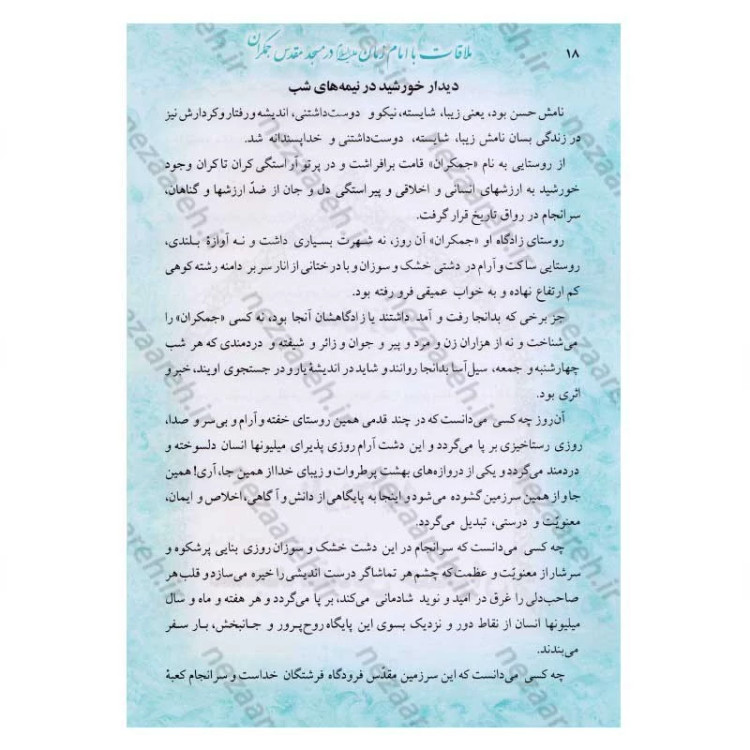 ۱۸
ملاقات با امام زمان در مسجد مقدس جمکران
دیدار خورشید در نیمه‌های شب
نامش حسن بود، یعنی زیبا، شایسته، نیکو و دوست‌داشتنی، اندیشه و رفتار و کردارش نیز
در زندگی بسان نامش زیبا، شایسته، دوست‌داشتنی و خداپسندانه شد.
از روستایی به نام «جمکران» قامت برافراشت و در پرتو آراستگی کران تا کران وجود
خورشید به ارزشهای انسانی و اخلاقی و پیراستگی دل و جان از ضدّ ارزشها و گناهان،
سرانجام در رواق تاریخ قرار گرفت.
روستای زادگاه او «جمکران» آن روز، نه شهرت بسیاری داشت و نه آوازهٔ بلندی،
روستایی ساکت و آرام در دشتی خشک و سوزان و با درختانی از انار سر بر دامنه رشته کوهی
کم ارتفاع نهاده و به خواب عمیقی فرو رفته بود.
جز برخی که بدانجا رفت و آمد داشتند یا زادگاهشان آنجا بود، نه کسی «جمکران» را
می‌شناخت و نه از هزاران زن و مرد و پیر و جوان و زائر و شیفته و دردمندی که هر شب
چهارشنبه و جمعه، سیل‌آسا بدانجا روانند و شاید در اندیشهٔ یار و در جستجوی اویند، خبر و
اثری بود.
آن روز چه کسی می‌دانست که در چند قدمی همین روستای خفته و آرام و بی‌سر و صدا،
روزی رستاخیزی بر پا می‌گردد و این دشت آرام روزی پذیرای میلیونها انسان دلسوخته و
دردمند می‌گردد و یکی از دروازه‌های بهشت پرطراوت و زیبای خدا از همین جا، آری! همین
جا و از همین سرزمین گشوده می‌شود و اینجا به پایگاهی از دانش و آگاهی، اخلاص و ایمان،
معنویّت و درستی، تبدیل می‌گردد.
چه کسی می‌دانست که سرانجام در این دشت خشک و سوزان روزی بنایی پرشکوه و
سرشار از معنویّت و عظمت که چشم هر تماشاگر درست اندیشی را خیره می‌سازد و قلب هر
صاحب‌دلی را غرق در امید و نوید شادمانی می‌کند، بر پا می‌گردد و هر هفته و ماه و سال
میلیونها انسان از نقاط دور و نزدیک بسوی این پایگاه روح‌پرور و جانبخش، بار سفر
می‌بندند.
چه کسی می‌دانست که این سرزمین مقدّس فرودگاه فرشتگان خداست و سرانجام کعبهٔ
nezaareh.ir